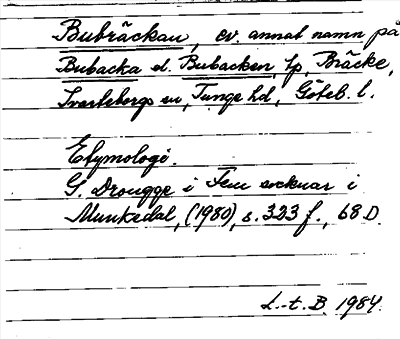 Bubräckan, ev. annat namn på
Bubacka el. Bubacken, lp, Bräcke,
Svarteborgs sn, Tunge hd, Göteb. l.
Etymologi.
G. Drougge i Fem socknar i
Munkedal, (1980), s. 323 f., 68 D.
L.-t. B. 1984.